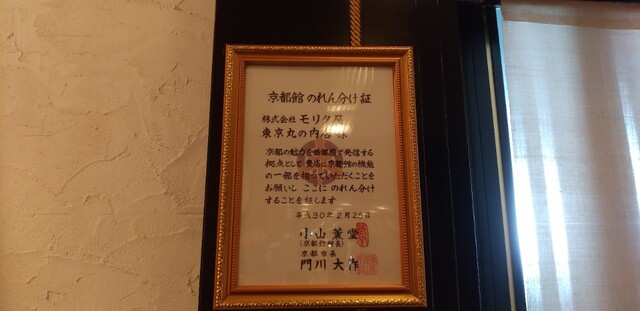 京都館 のれん分け証
株式会社 モリタ屋
東京丸の内店 様
京都の魅力を首都圏で発信する
拠点として 貴店に京都館の機能
の一部を担っていただくことを
お願いし ここに のれん分け
することを証します
平成30年2月25日
小山 薫堂
(京都館館長)
京都市長
門川 大作